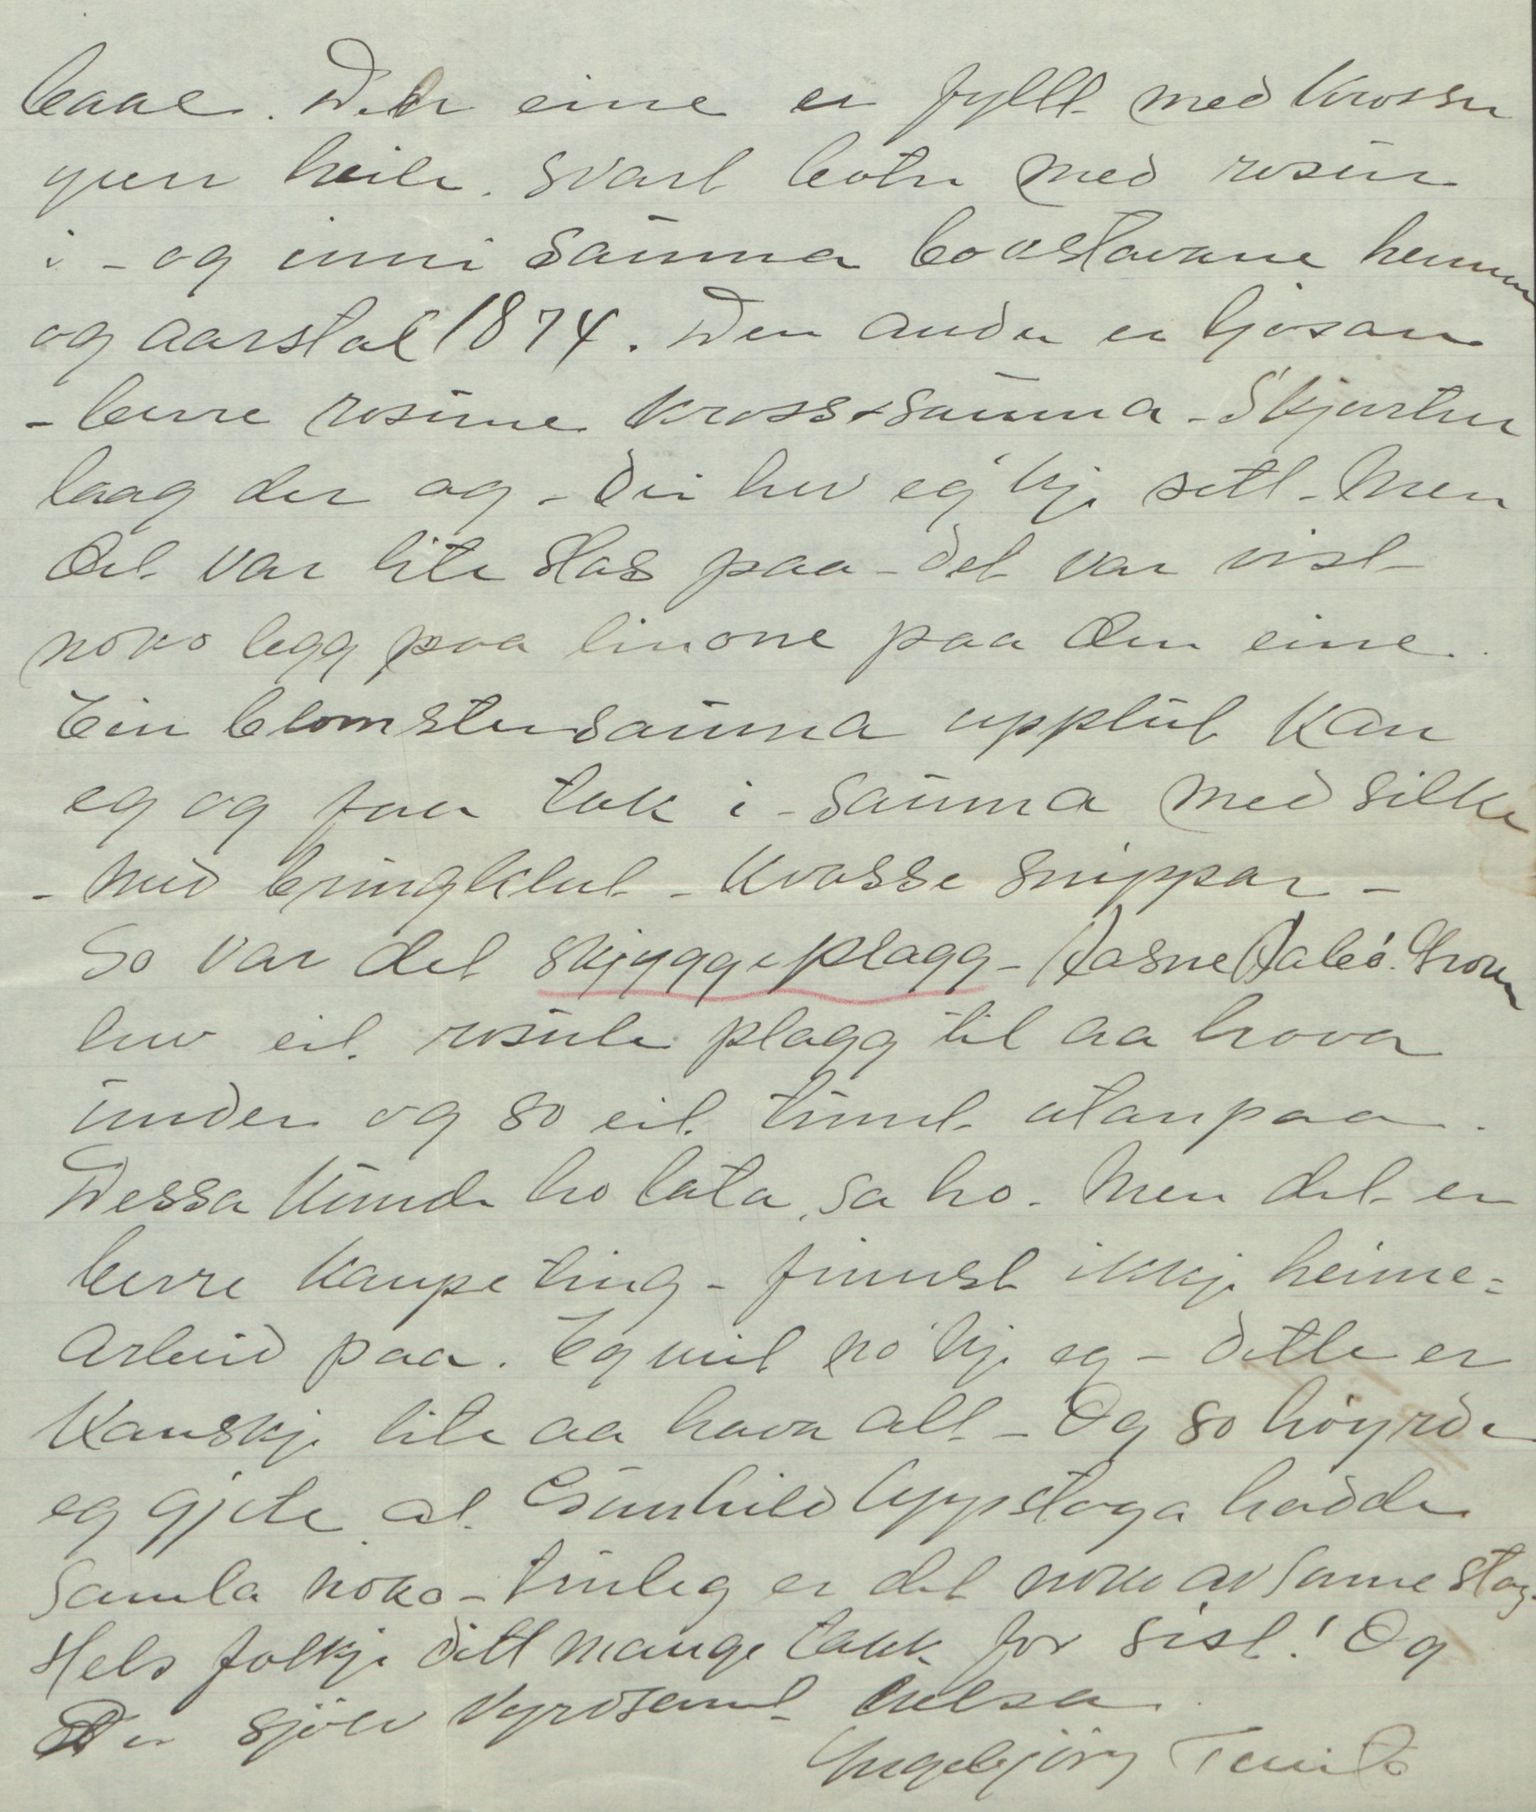 baae. Den eine er fyllt med krossar
yver heile. Svart botn med rosur
i - og inni sauma bokstavane hennar
og aarstal 1874. Den andre er ljosare
- berre rosune kross-sauma - Skjortur
laag der og - Dei hev eg 'kje sett - Men
det var lite stas paa - det var visst
noko legg paa linone paa den eine.
Ein blomstersauma upplut kan
eg og faa tak i - sauma med silke
- med bringklut - Kvasse snippar -
So var det skjyggeplagg - Aasne Dalbö. Grov
hev eit rosute plagg til aa hava
under og so eit tunnt utanpaa.
Dessa kunde ho lata, sa ho. Men det er
berre kaupe ting - finnst ikkje heime-
arbeid paa. Eg veit no 'kje eg - dette er
kanskje lite aa hava alt - Og so höyrde
eg gjete at Gunhild Uppstoga hadde
samla noko - truleg er det noko av same slag.
Hels folkje ditt mange takk for sist! Og
Der sjölv vyrdsamt helsa
Ingebjörg